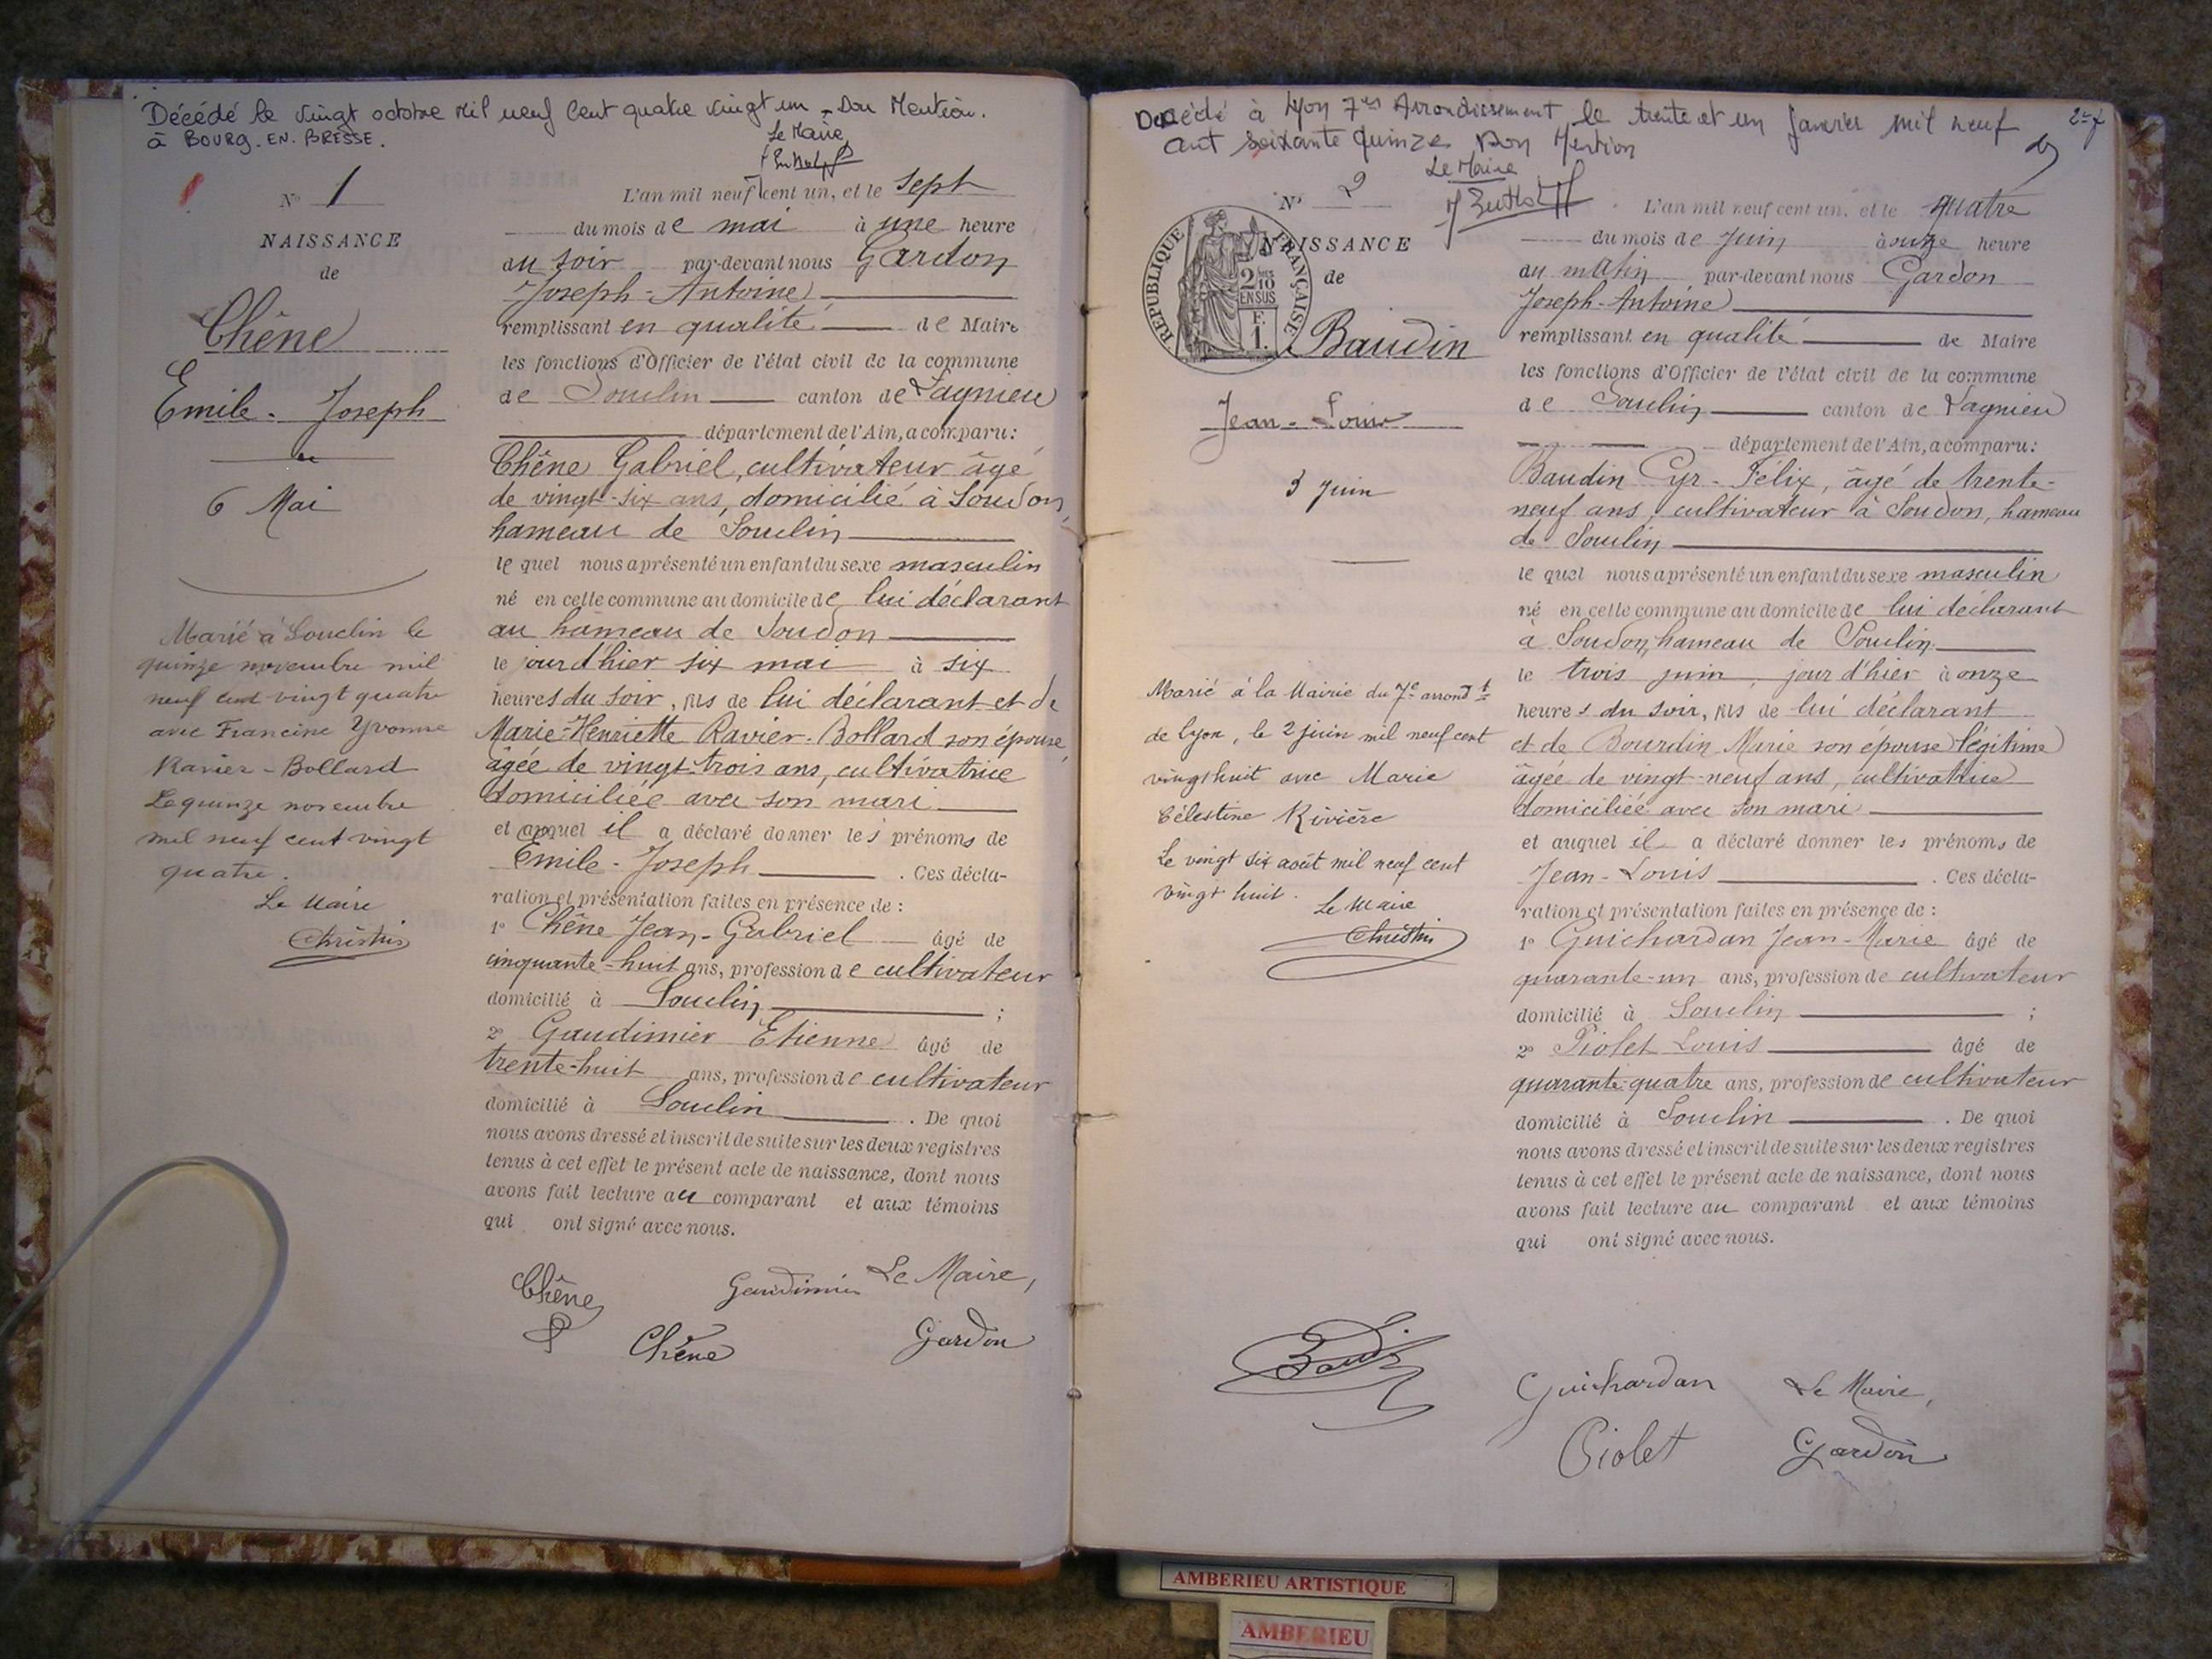 Décédé le vingt octobre mil neuf cent quatre vingt un - Dou Mention.
à BOURG.EN.BRESSE.
Le Maire
N° 1
NAISSANCE
de
Chêne
Emile-Joseph
6 Mai
Marié à Souclin le
quinze novembre mil
neuf cent vingt quatre
avec Francine Yvonne
Ravier-Bollard
Le quinze novembre
mil neuf cent vingt
quatre.
Le Maire
Christin
L'an mil neuf cent un, et le sept
du mois de mai à une heure
du soir par-devant nous Gardon
Joseph-Antoine
remplissant en qualité de Maire
les fonctions d'Officier de l'état civil de la commune
de Souclin canton de Lagnieu
département de l'Ain, a comparu:
Chêne Gabriel, cultivateur âgé
de vingt-six ans, domicilié à Soudon,
hameau de Souclin
le quel nous a présenté un enfant du sexe masculin
né en cette commune au domicile de lui déclarant
au hameau de Soudon
le jour d'hier six mai à six
heures du soir, fils de lui déclarant et de
Marie-Henriette Ravier-Bollard son épouse,
âgée de vingt-trois ans, cultivatrice
domiciliée avec son mari
et auquel il a déclaré donner les prénoms de
Emile-Joseph. Ces décla-
ration et présentation faites en présence de :
1° Chêne Jean-Gabriel âgé de
cinquante-huit ans, profession de cultivateur
domicilié à Souclin ;
2° Gaudimier Etienne âgé de
trente-huit ans, profession de cultivateur
domicilié à Souclin. De quoi
nous avons dressé et inscrit de suite sur les deux registres
tenus à cet effet le présent acte de naissance, dont nous
avons fait lecture au comparant et aux témoins
qui ont signé avec nous.
Chêne Gaudimier Le Maire,
Chêne Gardon
Décédé à Lyon 7es Arrondissement le trente et un Janvier mil neuf
cent soixante quinze Dou Mention
Le Maire
N° 2
NAISSANCE
de
RÉPUBLIQUE FRANÇAISE
2/10 EN SUS
F. 1.
Baudin
Jean-Louis
3 Juin
Marié à la Mairie du 7e arrondt
de Lyon, le 2 juin mil neuf cent
vingt huit avec Marie
Célestine Rivière
Le vingt six août mil neuf cent
vingt huit.
Le Maire
Christin
L'an mil neuf cent un, et le quatre
du mois de Juin à onze heure
du matin par-devant nous Gardon
Joseph-Antoine
remplissant en qualité de Maire
les fonctions d'Officier de l'état civil de la commune
de Souclin canton de Lagnieu
département de l'Ain, a comparu:
Baudin Cyr-Félix, âgé de trente-
neuf ans, cultivateur à Soudon, hameau
de Souclin
le quel nous a présenté un enfant du sexe masculin
né en cette commune au domicile de lui déclarant
à Soudon, hameau de Souclin
le trois juin, jour d'hier à onze
heures du soir, fils de lui déclarant
et de Bourdin Marie son épouse légitime
âgée de vingt-neuf ans, cultivatrice
domiciliée avec son mari
et auquel il a déclaré donner les prénoms de
Jean-Louis. Ces décla-
ration et présentation faites en présence de :
1° Guichardan Jean-Marie âgé de
quarante-un ans, profession de cultivateur
domicilié à Souclin ;
2° Piolet Louis âgé de
quarante-quatre ans, profession de cultivateur
domicilié à Souclin. De quoi
nous avons dressé et inscrit de suite sur les deux registres
tenus à cet effet le présent acte de naissance, dont nous
avons fait lecture au comparant et aux témoins
qui ont signé avec nous.
Guichardan Le Maire,
Piolet Gardon
AMBERIEU ARTISTIQUE
AMBERIEU